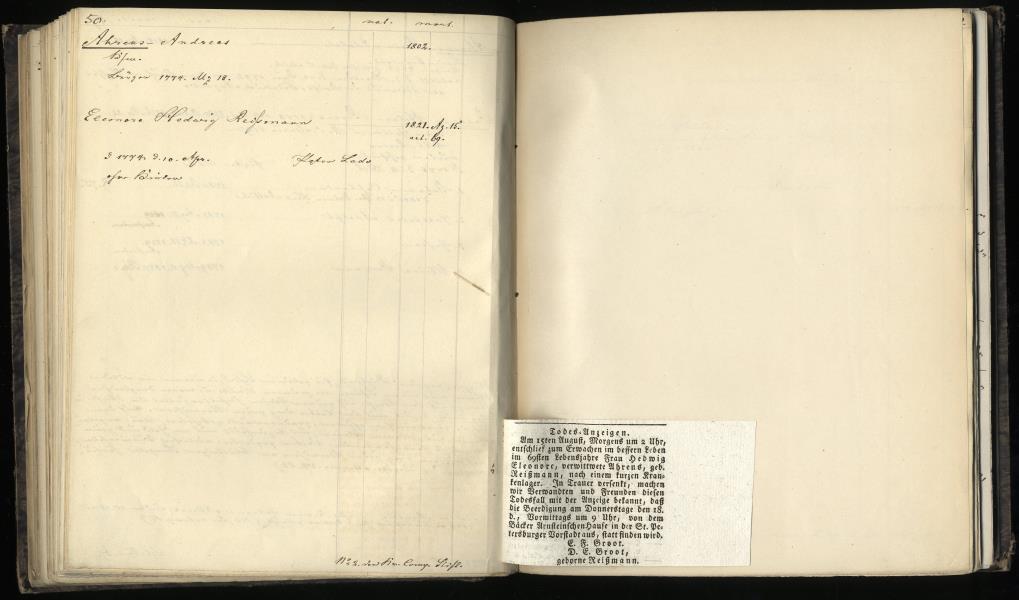 50.
nat. mort.
Ahrens - Andreas 1802.
Bürger 1774. Mz 18.
Eleonora Hedwig Reißmann
1821. Ag. 15.
aet. 69.
1774 d. 10. Apr.
ohne Kinder
Todes-Anzeigen.
Am 15ten August, Morgens um 2 Uhr,
entschlief zum Erwachen im bessern Leben
im 69sten Lebensjahre Frau Hedwig
Eleonore, verwittwete Ahrens, geb.
Reißmann, nach einem kurzen Kran-
kenlager. In Trauer versenkt, machen
wir Verwandten und Freunden diesen
Todesfall mit der Anzeige bekannt, daß
die Beerdigung am Donnerstage den 18.
d., Vormittags um 9 Uhr, von dem
Bäcker Arnsteinschen Hause in der St. Pe-
tersburger Vorstadt aus, statt finden wird.
E. F. Groot.
D. E. Groot,
geborne Reißmann.